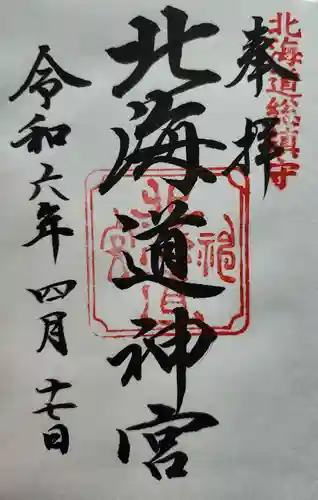 北海道総鎮守
奉拝
北海道神宮
令和六年四月十七日